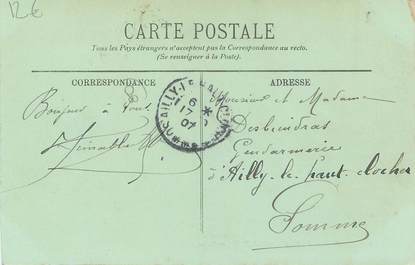 12€
CARTE POSTALE
Tous les Pays étrangers n'acceptent pas la Correspondance au recto.
(Se renseigner à la Poste).
CORRESPONDANCE
ADRESSE
Bonjour à tous
Monsieur et Madame
Gendarmerie
à Ailly-le-haut-clocher
Somme
AILLY
6
17
07
SOMME